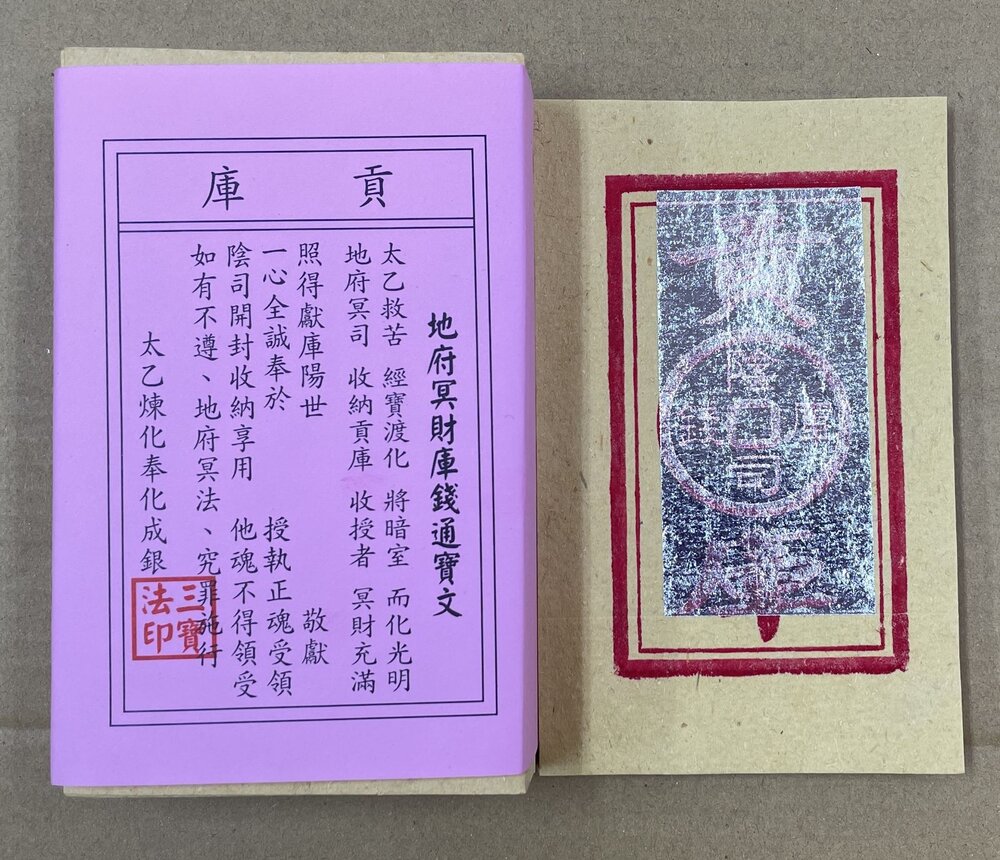 貢庫
地府冥財庫錢通寶文
太乙救苦 經寶渡化 將暗室 而化光明
地府冥司 收納貢庫 收授者 冥財充滿
照得獻庫陽世 敬獻
一心全誠奉於 授執正魂受領
陰司開封收納享用 他魂不得領受
如有不遵、地府冥法、究罪施行
太乙煉化奉化成銀
三寶
法印
陰司